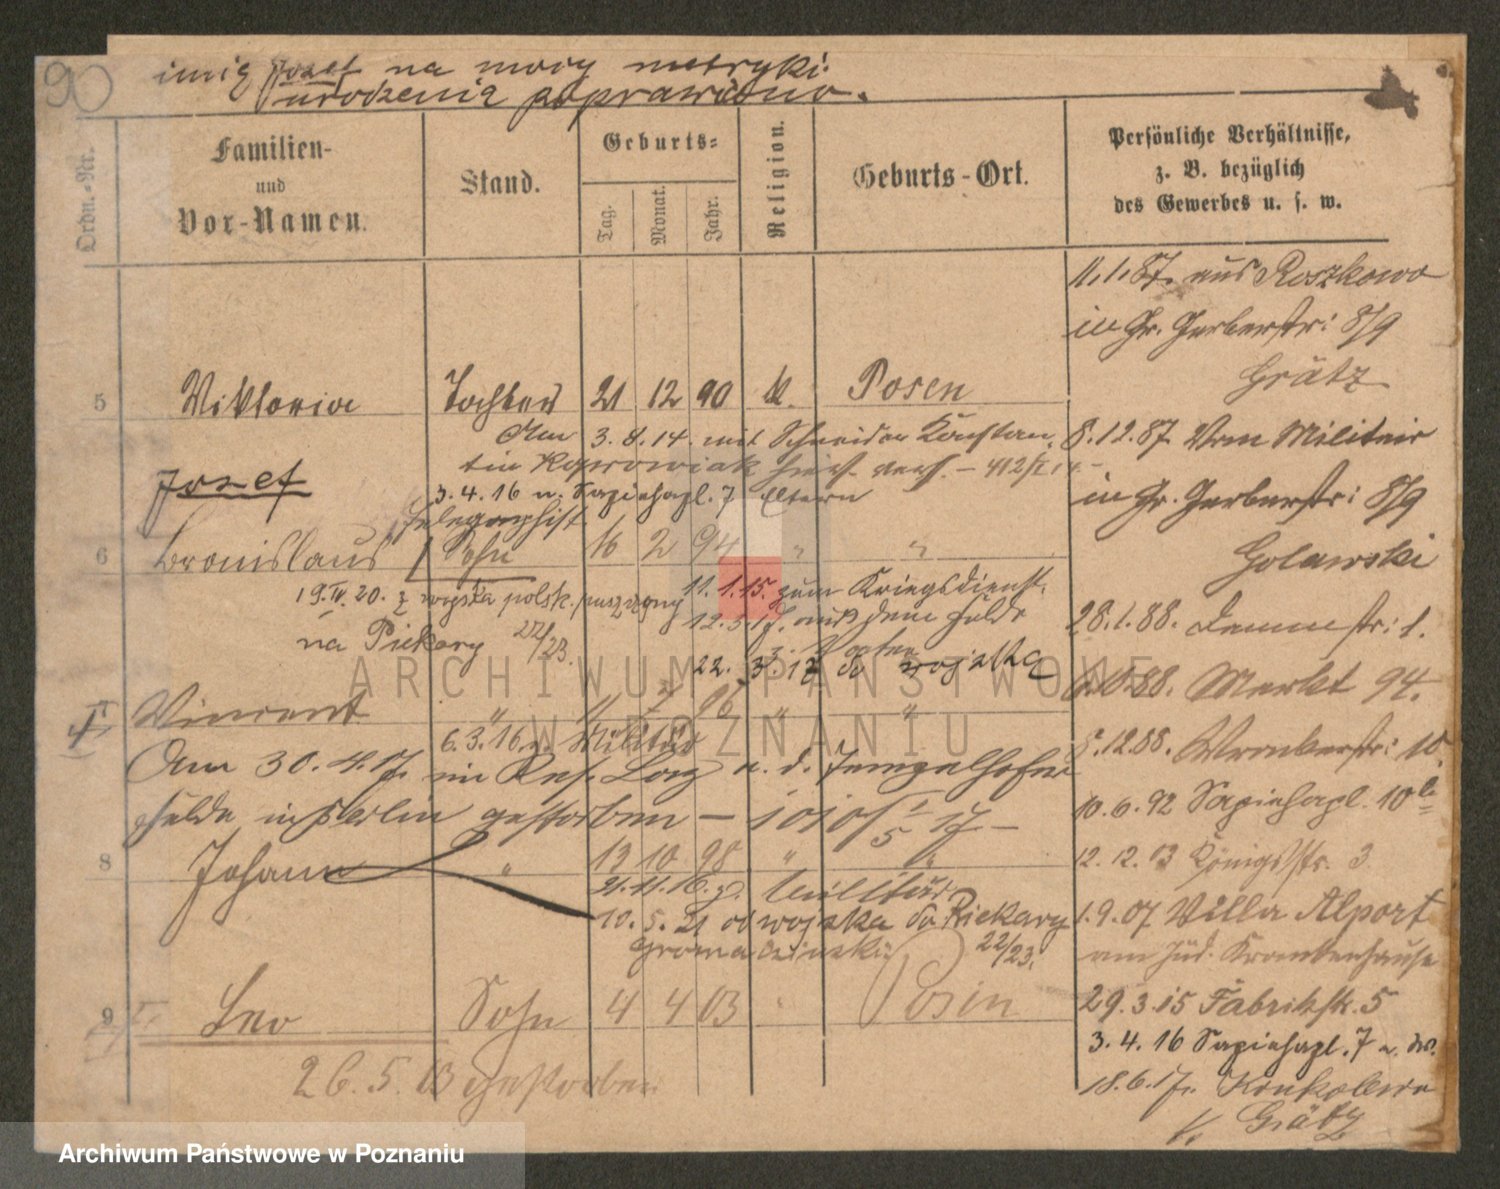 90
imię Jozef na mocy metryki
urodzenia poprawiono.
Ordn.-Nr.
Familien-
und
Vor-Namen.
Stand.
Geburts-
Tag.
Monat.
Jahr.
Religion.
Geburts-Ort.
Persönliche Verhältnisse,
z. B. bezüglich
des Gewerbes u. s. w.
5 Viktoria Tochter 21 12 90 k. Posen
Am 3. 8. 14. mit Schneider Konstan-
tin Koprowiak hier verh. - 412/II 14 -
3. 4. 16 n. Sapiehapl. 7 Eltern
Jozef
Telegraphist
6 Bronislaus Sohn 16 2 94 " "
19. IV. 20. z wojska polsk. puszczony
na Piekary 22/23.
11. 1. 15. zum Kriegsdienst.
12. 3. 17. aus dem Felde
z. Vater
22. 3. 17 do wojska
7 Vincent " 96 " "
6. 3. 16 z. Militär
Am 30. 4. 17. im Res. Laz a. d. Tempelhofer
Felde in Berlin gestorben -
8 Johann " 13 10 98 " "
21. 11. 16. z. Militär
10. 5. 21 od wojska do Piekary
22/23.
9 Leo Sohn 4 4 03 " Posen
26. 5. 03 gestorben
11. 1. 87. aus Roszkowo
in Gr. Gerberstr: 8/9
Grätz
8. 12. 87. Vom Militair
in Gr. Gerberstr: 8/9
Golawski
28. 1. 88. Dammstr: 1.
10. 88. Markt 94.
8. 12. 88. Wronkerstr: 10.
10. 6. 92 Sapiehapl. 10b
12. 12. 03 Königsstr. 3
1. 9. 07 Villa Alport
am jüd. Krankenhause
29. 3. 15 Fabrikstr. 5
3. 4. 16 Sapiehapl. 7
18. 6. 17.
K. Grätz
ARCHIWUM PAŃSTWOWE
W POZNANIU
Archiwum Państwowe w Poznaniu